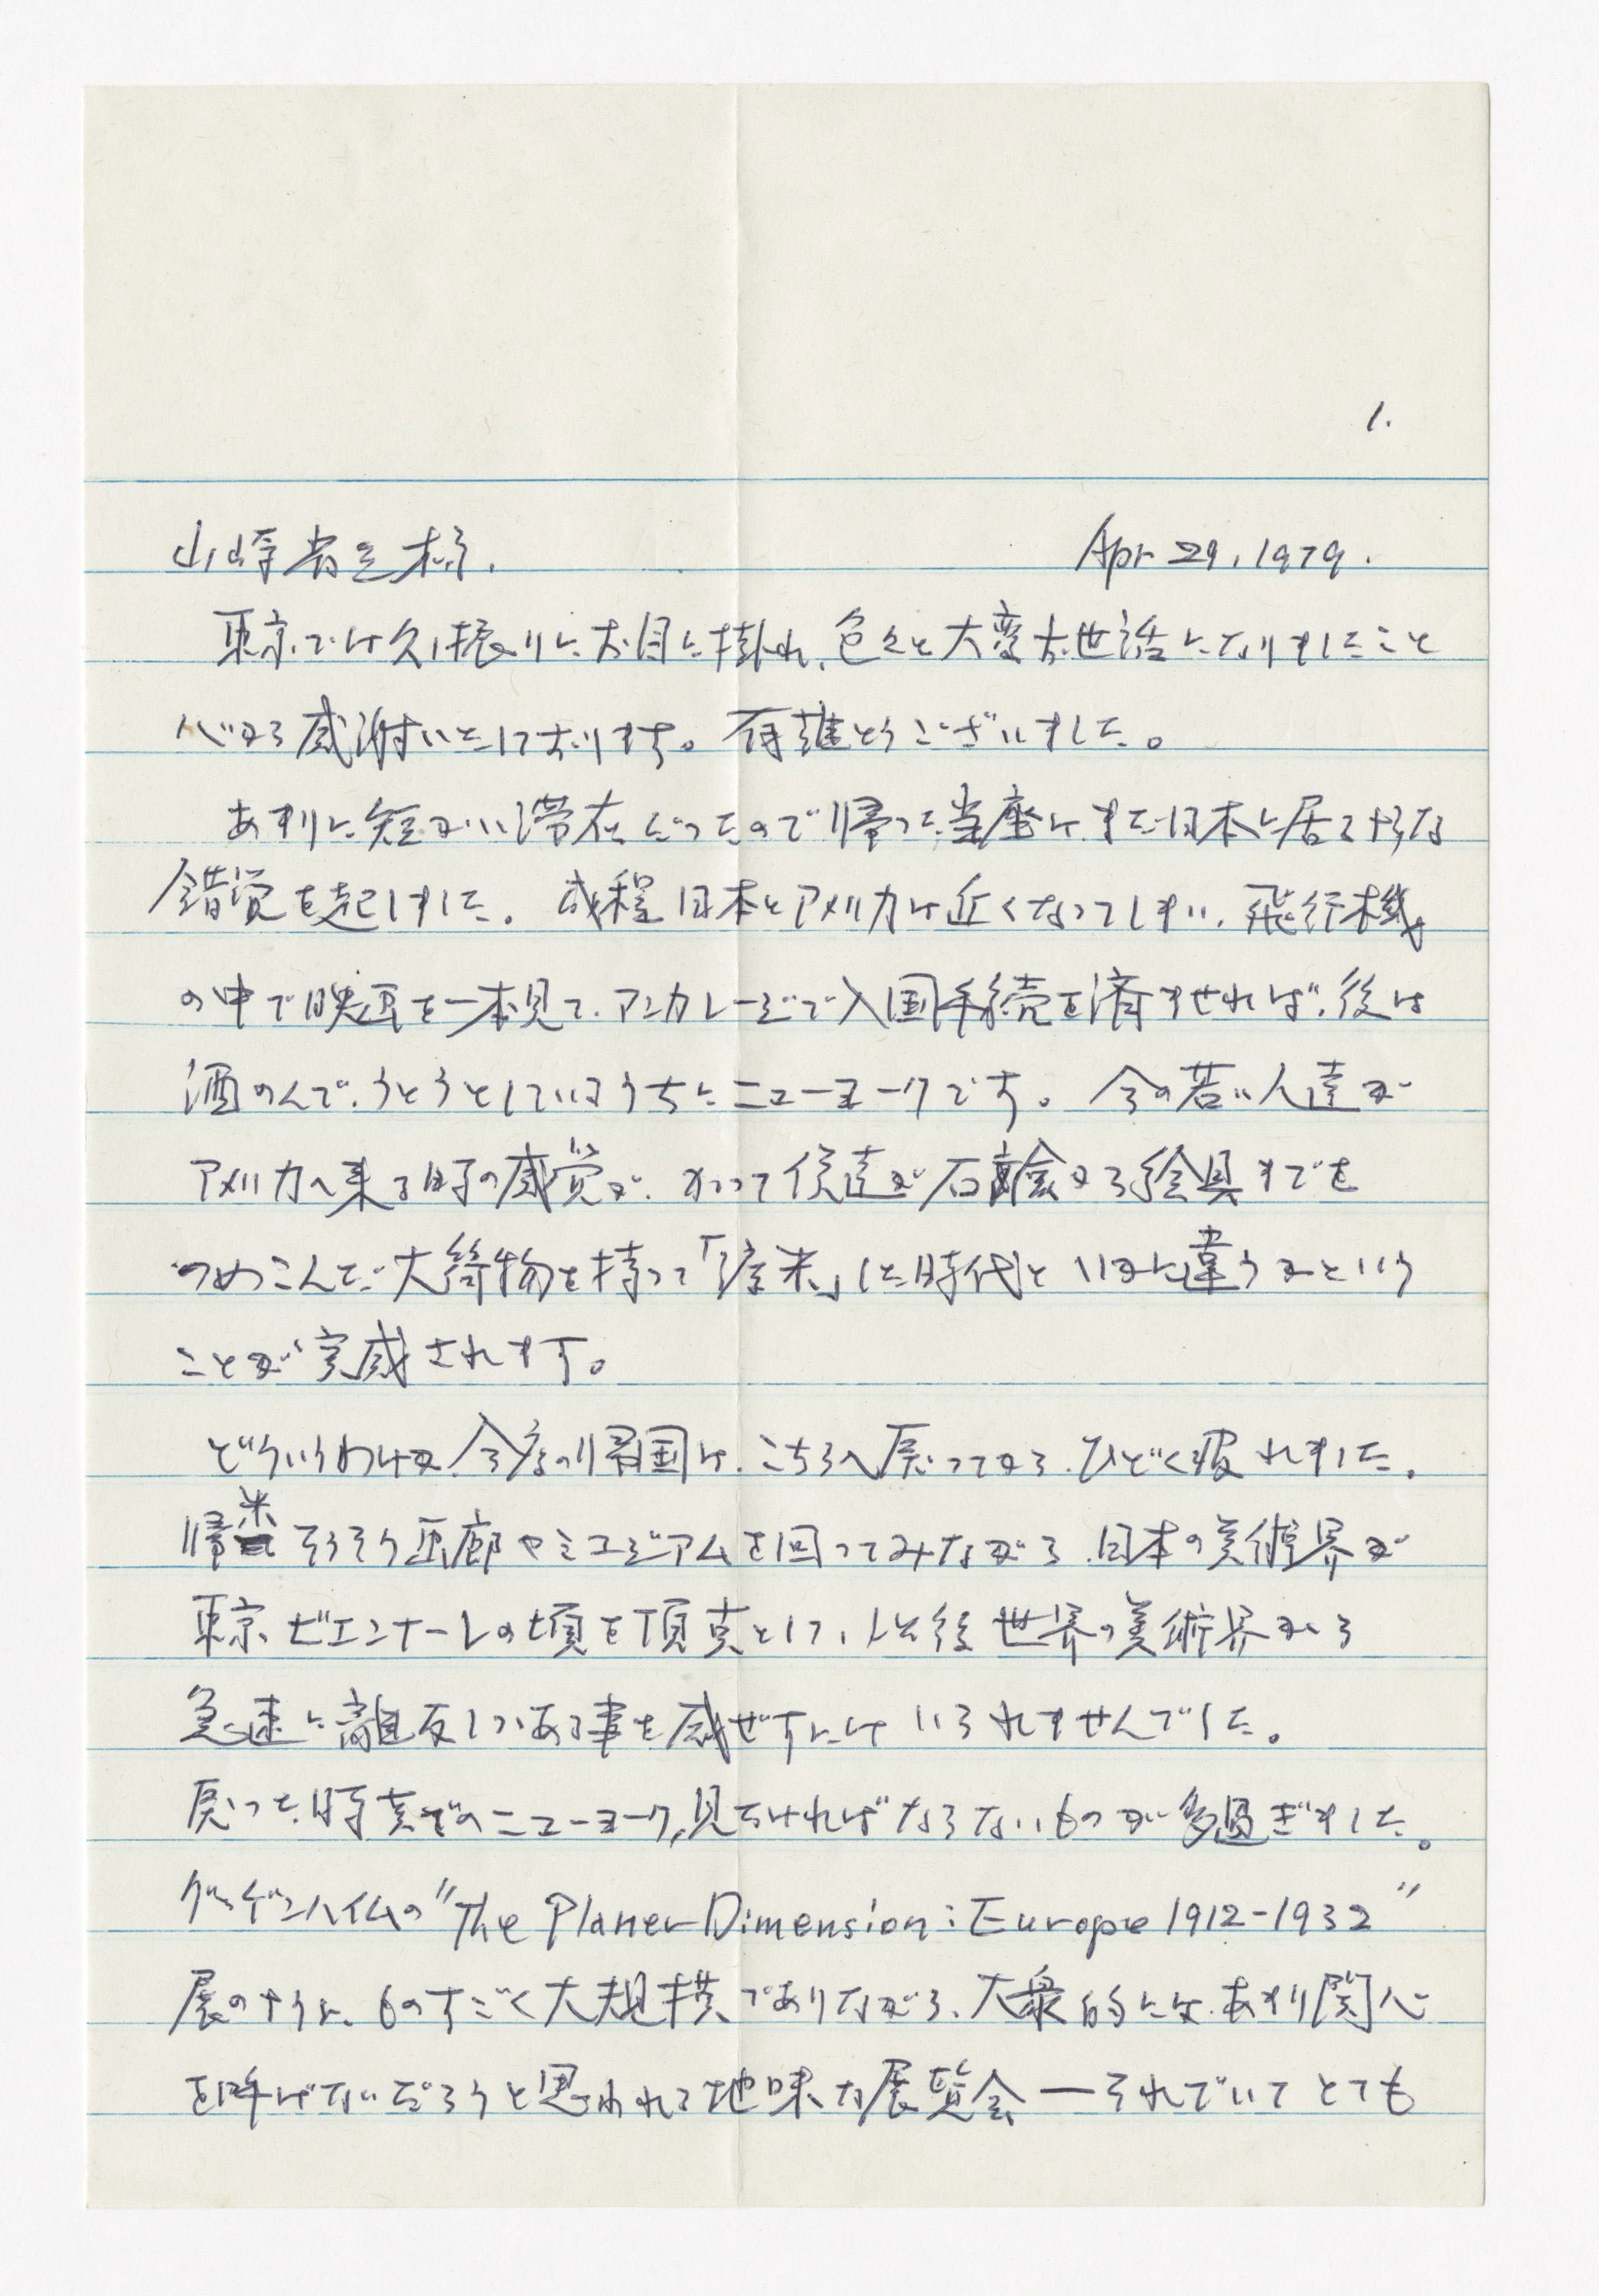 1.
山崎省三様.
Apr 29, 1979.
東京では久し振りにお目に掛れ、色々と大変お世話になりましたこと
心から感謝いたしております。有難とうございました。
あまりに短かい滞在だったので帰った当座は、まだ日本に居るような
錯覚を起しました。成程日本とアメリカは近くなってしまい、飛行機
の中で映画を一本見て、アンカレージで入国手続を済ませれば、後は
酒のんで、うとうとしているうちにニューヨークです。今の若い人達が
アメリカへ来る時の感覚が、かつて僕達が石鹸から絵具までを
つめこんだ大荷物を持って「渡米」した時代といかに違うかという
ことが実感されます。
どういうわけか、今度の帰国は、こちらへ戻ってから、ひどく疲れました。
帰米そうそう画廊やミュージアムを回ってみながら、日本の美術界が
東京ビエンナーレの頃を頂点として、以後世界の美術界から
急速に離反しつつある事を感ぜずにはいられませんでした。
戻った時点でのニューヨーク、見なければならないものが多過ぎました。
グッゲンハイムの"The Planer Dimension: Europe 1912-1932"
展のように、ものすごく大規模でありながら、大衆的には、あまり関心
を呼ばないだろうと思われる地味な展覧会―それでいてとても